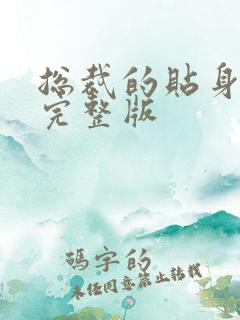 总裁的贴身
完整版
码字的
未经同意禁止转载